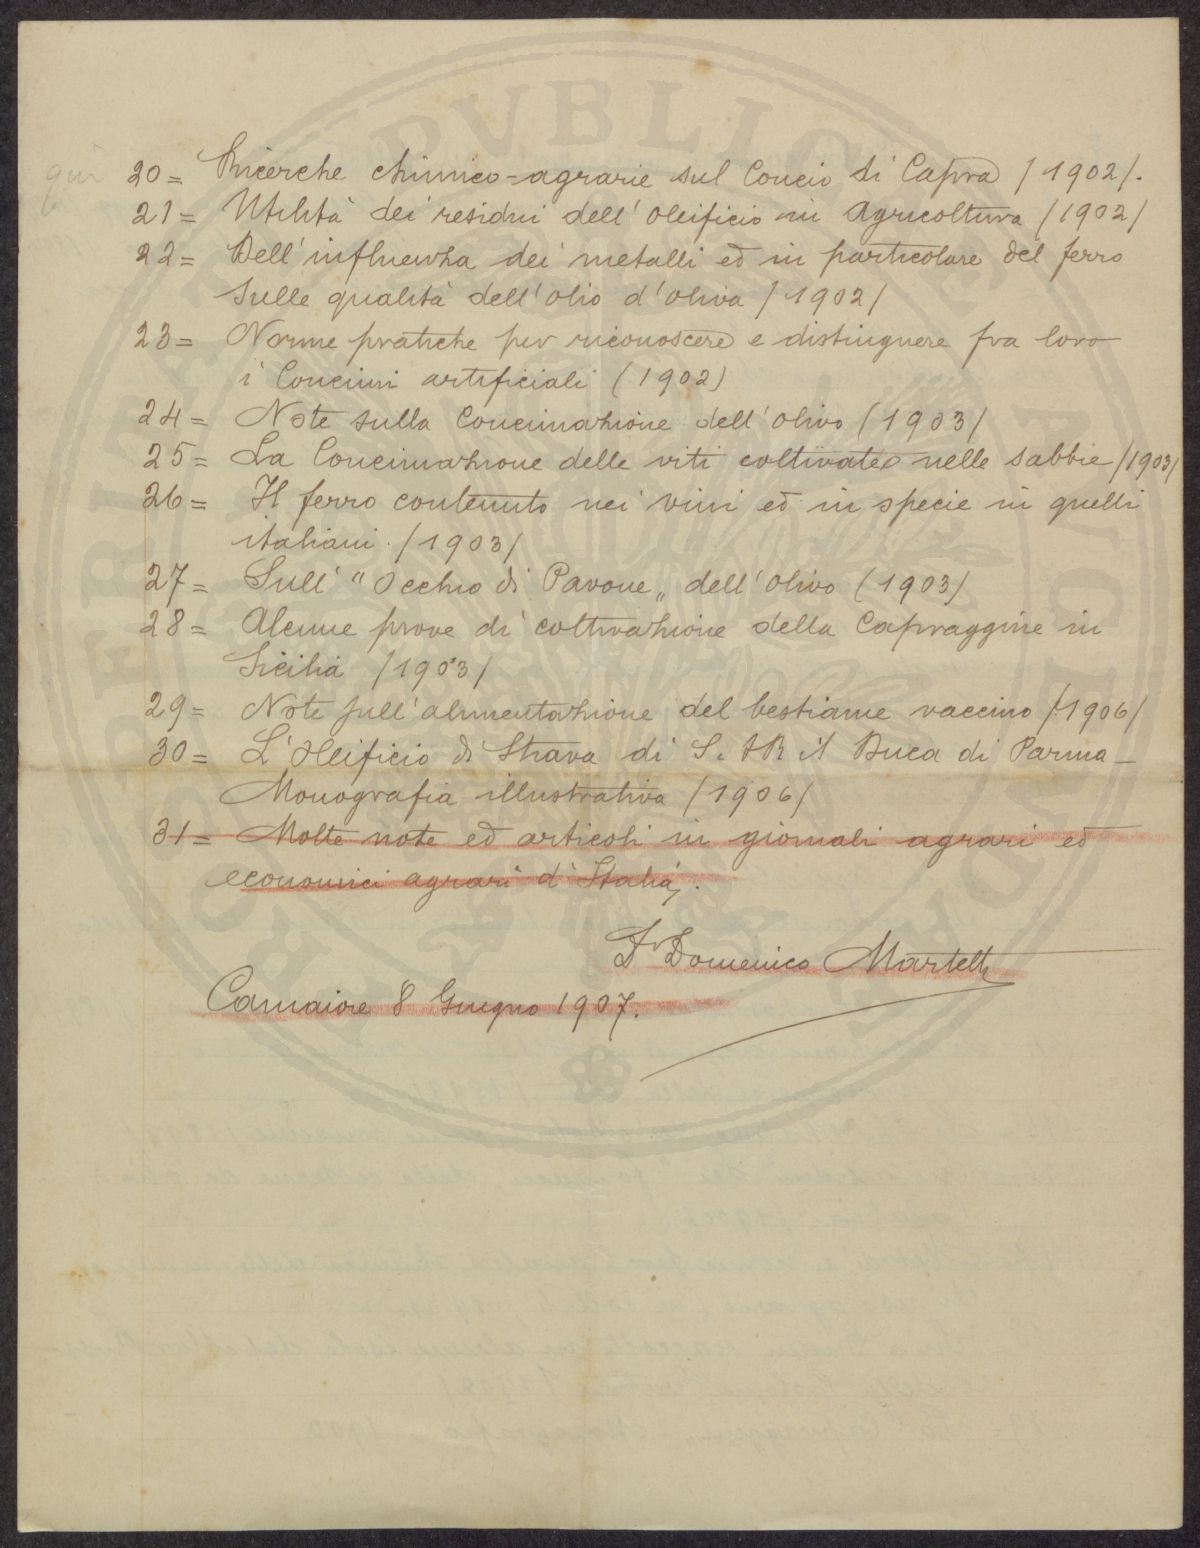 qui 20= Ricerche chimico-agrarie sul Concio di Capra /1902/.
21= Utilità dei residui dell'oleificio in Agricoltura /1902/
22= Dell'influenza dei metalli ed in particolare del ferro
sulle qualità dell'olio d'oliva /1902/
23= Norme pratiche per riconoscere e distinguere fra loro
i Concimi artificiali (1902)
24= Note sulla Concimazione dell'olivo (1903/
25= La Concimazione delle viti coltivate nelle sabbie /1903/
26= Il ferro contenuto nei vini ed in specie in quelli
italiani. /1903/
27= Sull' "Occhio di Pavone" dell'olivo (1903/
28= Alcune prove di coltivazione della Capraggine in
Sicilia /1903/
29= Note sull'alimentazione del bestiame vaccino /1906/
30= L'Oleificio di Strava di S. AR il Duca di Parma_
Monografia illustrativa /1906/
31= Molte note ed articoli in giornali agrari ed
economici agrari d'Italia.
Dr Domenico Martelli
Camaiore 8 Giugno 1907.